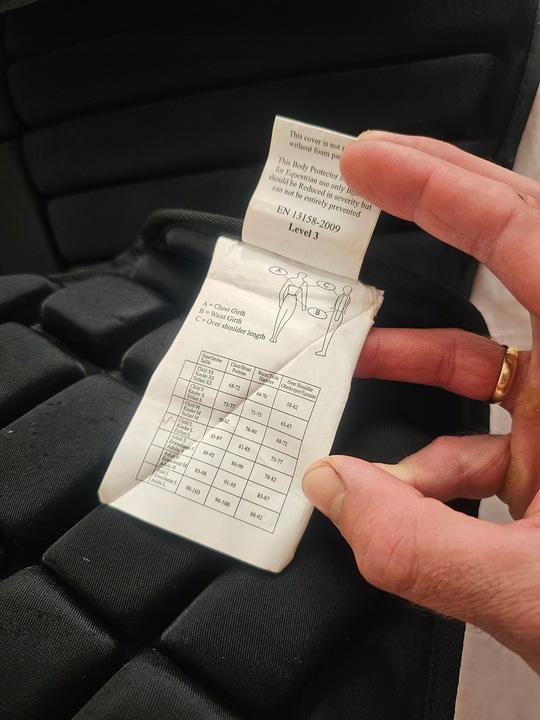 This cover is not
without foam
This Body Protector
for Equestrian use only
should be Reduced in severity but
can not be entirely prevented
EN 13158-2009
Level 3
A C
B
A = Chest Girth
B = Waist Girth
C = Over shoulder length
Size/Grobe Chest/Brust Waist/Taille Over Shoulder
Taille Poitrine Hanches
Child XS
Kinder XS 68-72 66-70 58-62
Enfant XS
Child S
Kinder S 73-77 71-75 63-67
Enfant S
Child M
Kinder M 78-82 76-80 68-72
Enfant M
Child L
Kinder L 83-87 81-85 73-77
Enfant L
Adult S
88-92 86-90 78-82
Adulte S
93-98 91-95 83-87
99-103 96-100 88-92
Adulte L